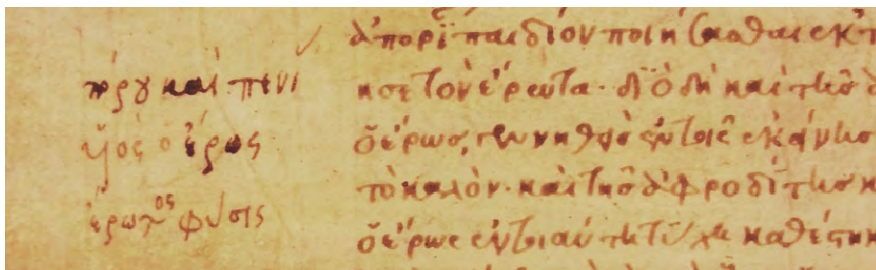 πόρου καὶ πενί
ὑὸς ὁ ἔρως
ἔρωτος φύσις
παιδίον ποιήσασθαι ἐκ τ
ησε τὸν ἔρωτα· διὸ δὴ καὶ τῆς ἀ
ὁ ἔρως, γεννηθεὶς ἐν τοῖς ἐκείνης
τὸ καλὸν· καὶ τῆς ἀφροδίτης κ
ὁ ἔρως ἐν τοιαύτῃ τύχῃ καθέστηκ